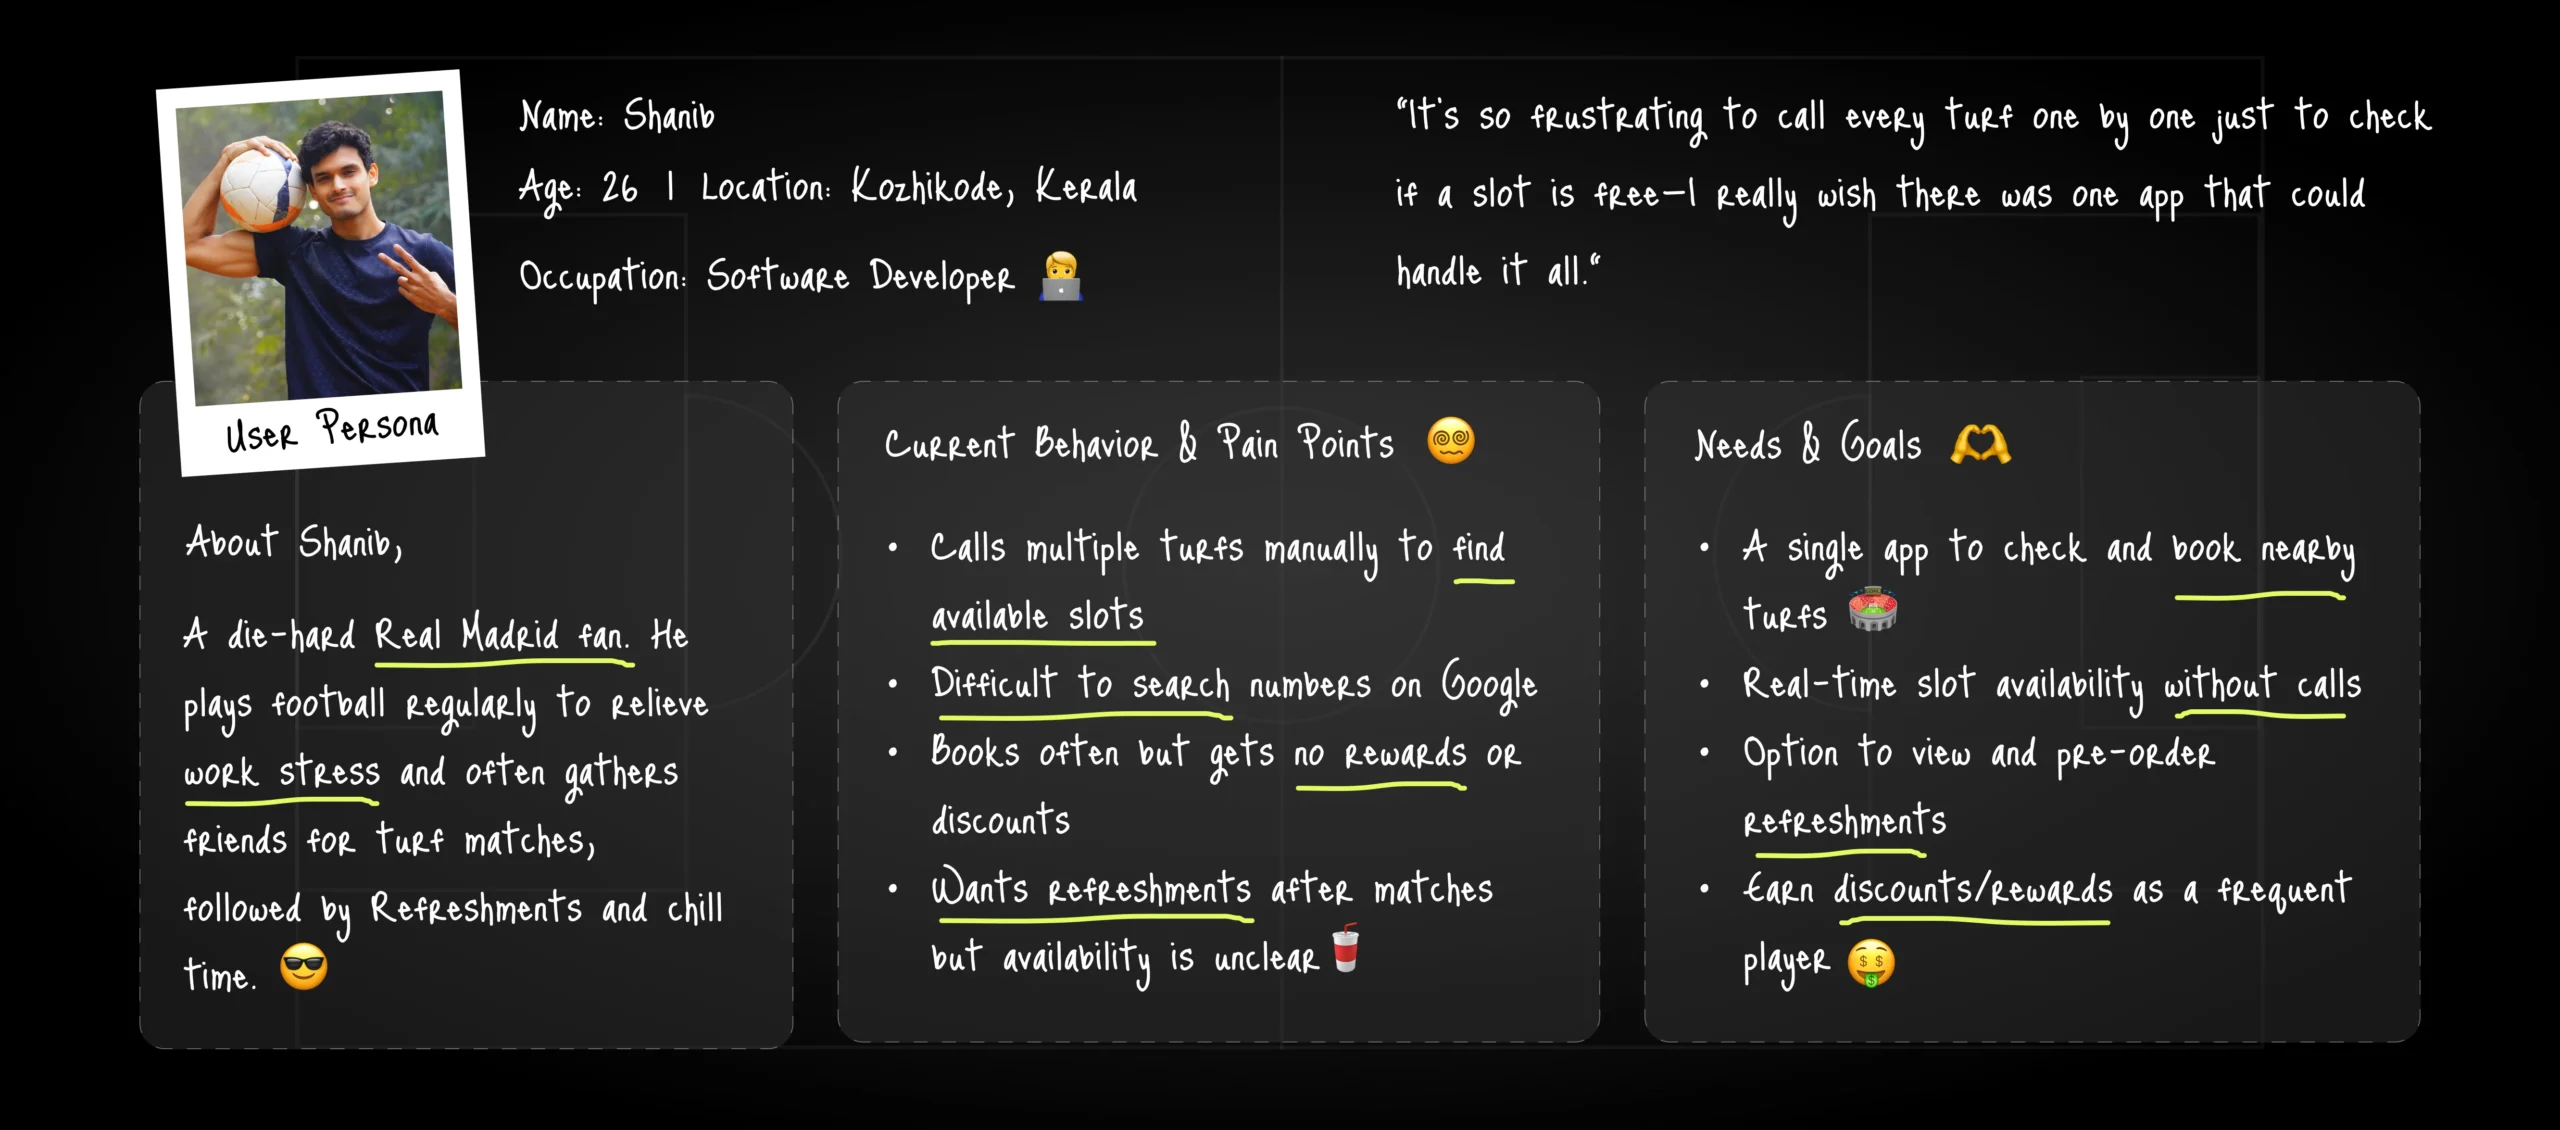 Name: Shanib
Age: 26 | Location: Kozhikode, Kerala
Occupation: Software Developer 👨‍💻
“It's so frustrating to call every turf one by one just to check
if a slot is free—I really wish there was one app that could
handle it all.“
User Persona
About Shanib,
A die-hard Real Madrid fan. He
plays football regularly to relieve
work stress and often gathers
friends for turf matches,
followed by Refreshments and chill
time. 😎
Current Behavior & Pain Points 😵‍💫
• Calls multiple turfs manually to find
available slots
• Difficult to search numbers on Google
• Books often but gets no rewards or
discounts
• Wants refreshments after matches
but availability is unclear🥤
Needs & Goals 🫶
• A single app to check and book nearby
turfs 🏟️
• Real-time slot availability without calls
• Option to view and pre-order
refreshments
• Earn discounts/rewards as a frequent
player 🤑